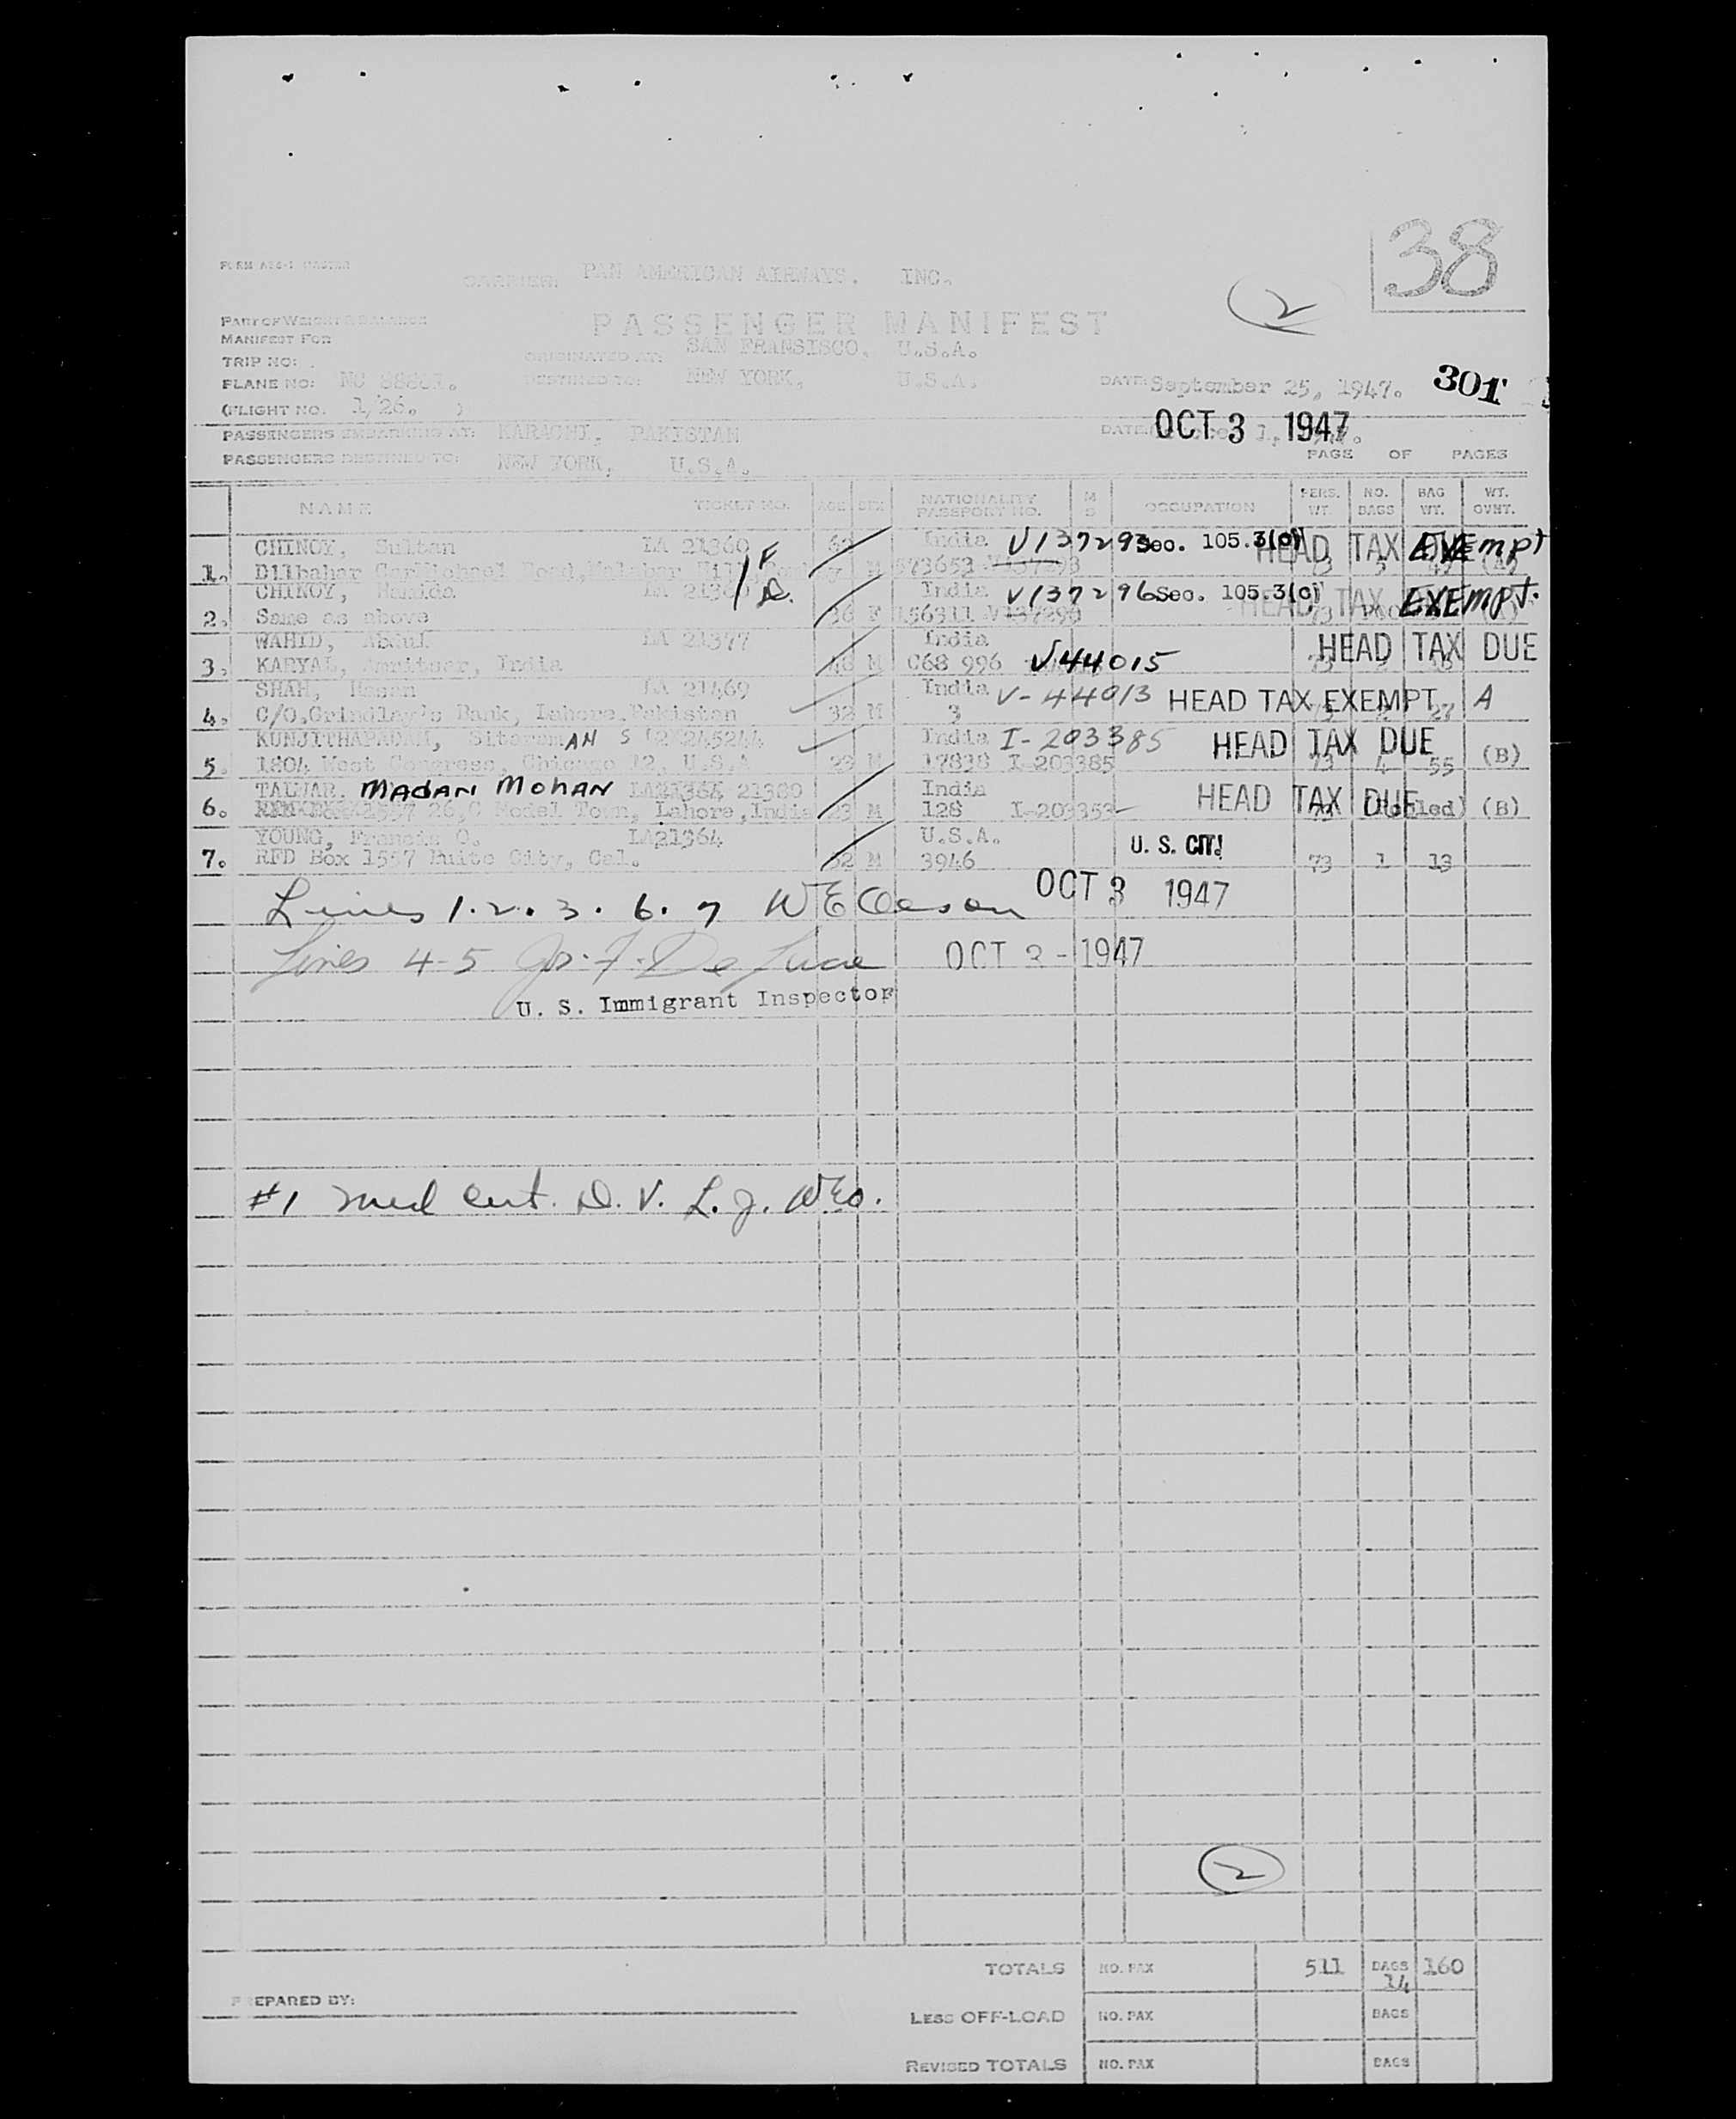 38
CARRIER: PAN AMERICAN AIRWAYS. INC.
2
PART OF WEIGHT & BALANCE
MANIFEST FOR
PASSENGER MANIFEST
TRIP NO:
ORIGINATED AT: SAN FRANSISCO, U.S.A.
PLANE NO: NC
DESTINED TO: NEW YORK, U.S.A.
DATE: September 25, 1947. 301
(FLIGHT NO. 1/26. )
PASSENGERS EMBARKING AT: KARACHI, PAKISTAN
DATE: OCT 3 1947
PASSENGERS DESTINED TO: NEW YORK, U.S.A.
PAGE OF PAGES
NAME TICKET NO. AGE SEX NATIONALITY PASSPORT NO. M S OCCUPATION PERS. WT. NO. BAGS BAG WT. WT. OVHT.
CHINOY, Sultan LA 21360 India V137293 Sec. 105.3(c) HEAD TAX EXEmpt
1. Dilbahar Carmichael Road, Malabar Hill M 573653
CHINOY, Hamida India V137296 Sec. 105.3(c) HEAD TAX EXEmpt.
2. Same as above 36 F 156311 V137290 73
WAHID, Abdul LA 21377 India HEAD TAX DUE
3. KARYAL, Amritsar, India M C68 996 V44015
SHAH, Hasan LA 21469 India V-44013 HEAD TAX EXEMPT A
4. C/O.Grindlay's Bank, Lahore.Pakistan 32 M 3 27
KUNJITHAPADAM, SitaramAN S India I-203385 HEAD TAX DUE
5. 1804 West Congress, Chicago 12, U.S.A 23 M 17838 I-203385 73 4 55 (B)
TALWAR. MADAN MOHAN 21380 India HEAD TAX DUE
6. 26,C Model Town, Lahore,India 23 M 128 I-203353 (B)
YOUNG, Francis O. LA21364 U.S.A. U. S. CIT.
7. RFD Box 1557 City, Cal. 52 M 3946 73 1 13
Lines 1.2.3. 6. 7 OCT 3 1947
Lines 4-5 OCT 3 - 1947
U. S. Immigrant Inspector
#1 med cert. D. V. L. J. WEO.
2
TOTALS NO. PAX 511 BAGS 14 160
PREPARED BY:
LESS OFF-LOAD NO. PAX BAGS
REVISED TOTALS NO. PAX BAGS